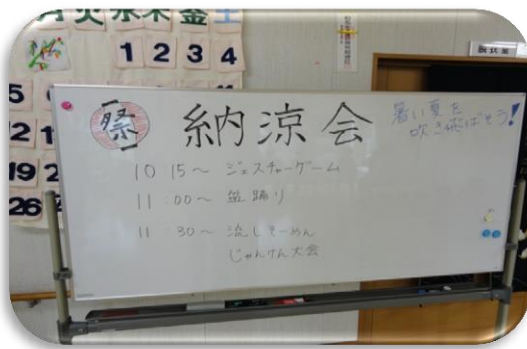 月火水木金土
1 2 3 4
5
12 1
19 2
26
脱衣室
祭 納涼会
暑い夏を
吹き飛ばそう!
10 15～ ジェスチャーゲーム
11:00～ 盆踊り
11 30～ 流しそーめん
じゃんけん大会